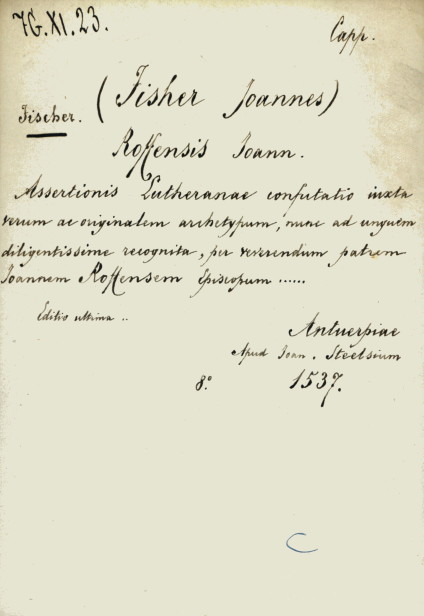 7G.XI.23.
Capp.
Fischer.
(Fisher Joannes)
Roffensis Joann.
Assertionis Lutheranae confutatio iuxta
verum ac originalem archetypum, nunc ad unguem
diligentissime recognita, per reverendum patrem
Joannem Roffensem Episcopum ......
Editio ultima ..
Antuerpiae
Apud Joan. Steelsium
8.° 1537.
C